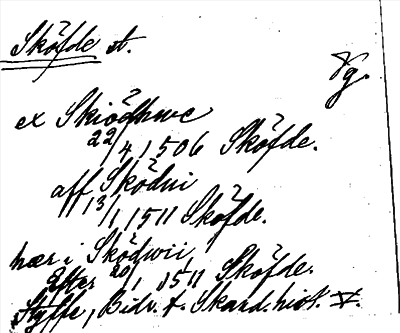 Sköfde st.
Vg.
ex Skiödhwe
22/4 1506 Sköfde.
aff Sködui
13/1 1511 Sköfde.
hær i Sködwii
Efter 20/1 1511 Sköfde.
Styffe, Bidr. t. Skand. hist. V.